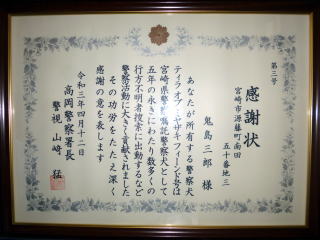 第三号
感謝状
宮崎市源藤町南田
五十番地三
鬼島三郎 様
あなたが所有する警察犬
ティラ オブ ミヤザキ フィーンド号は
宮崎県警察嘱託警察犬として
五年の永きにわたり数多くの
行方不明者捜索に出動するなど
警察活動に大きく貢献されました
その功労をたたえ深く
感謝の意を表します
令和三年四月十二日
高岡警察署長
警視 山崎 猛